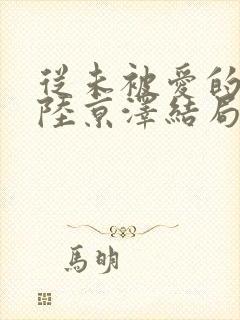 從未被愛的
陸京澤結局
馬明